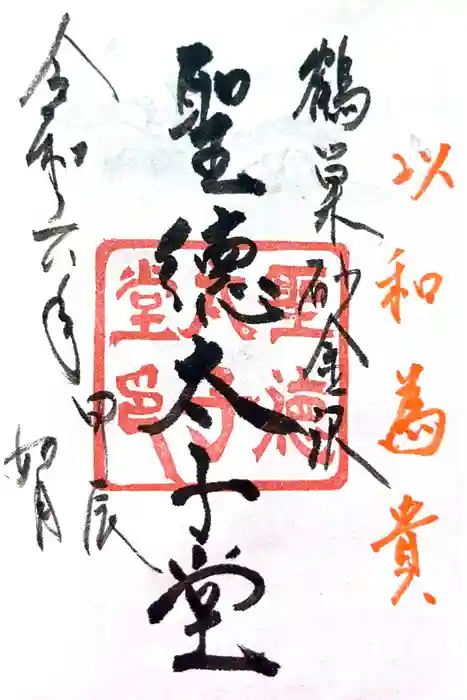 以和為貴
鶴巣砂金沢
聖徳太子堂
聖徳
太子
堂印
令和六年甲辰
如月